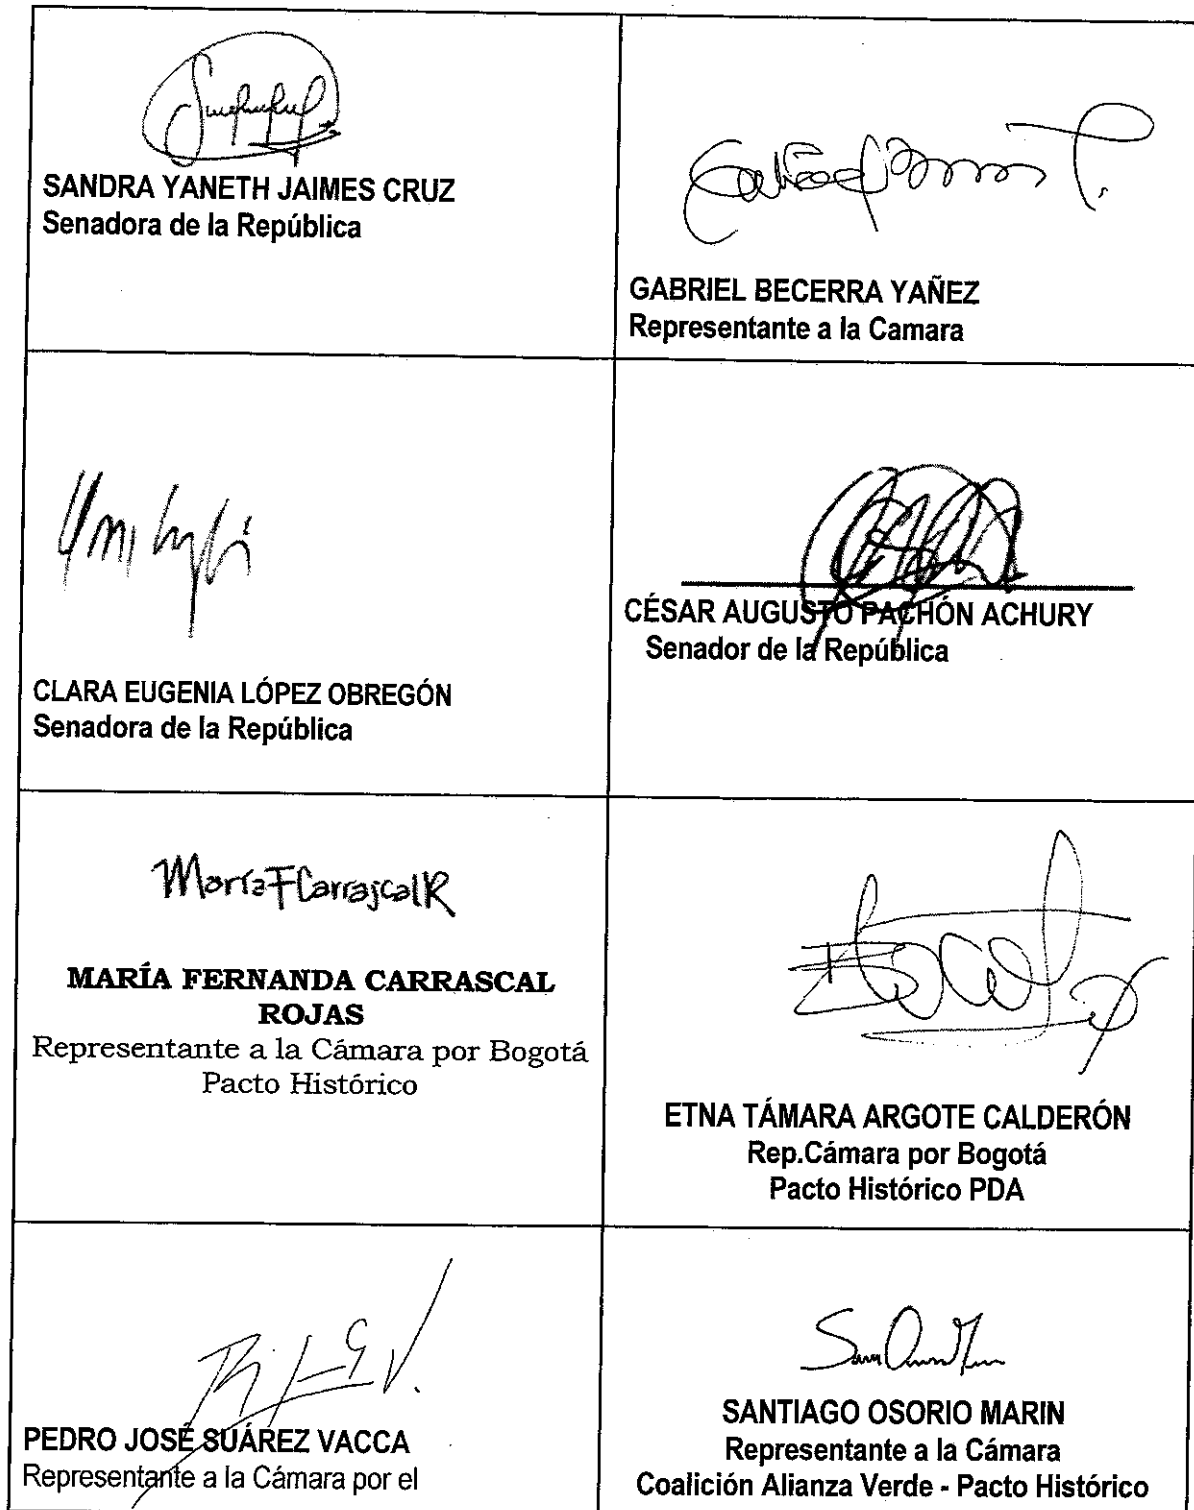 SANDRA YANETH JAIMES CRUZ
Senadora de la República
GABRIEL BECERRA YAÑEZ
Representante a la Camara
CLARA EUGENIA LÓPEZ OBREGÓN
Senadora de la República
CÉSAR AUGUSTO PACHÓN ACHURY
Senador de la República
María F Carrascal R
MARÍA FERNANDA CARRASCAL
ROJAS
Representante a la Cámara por Bogotá
Pacto Histórico
ETNA TÁMARA ARGOTE CALDERÓN
Rep.Cámara por Bogotá
Pacto Histórico PDA
PEDRO JOSÉ SUÁREZ VACCA
Representante a la Cámara por el
SANTIAGO OSORIO MARIN
Representante a la Cámara
Coalición Alianza Verde - Pacto Histórico